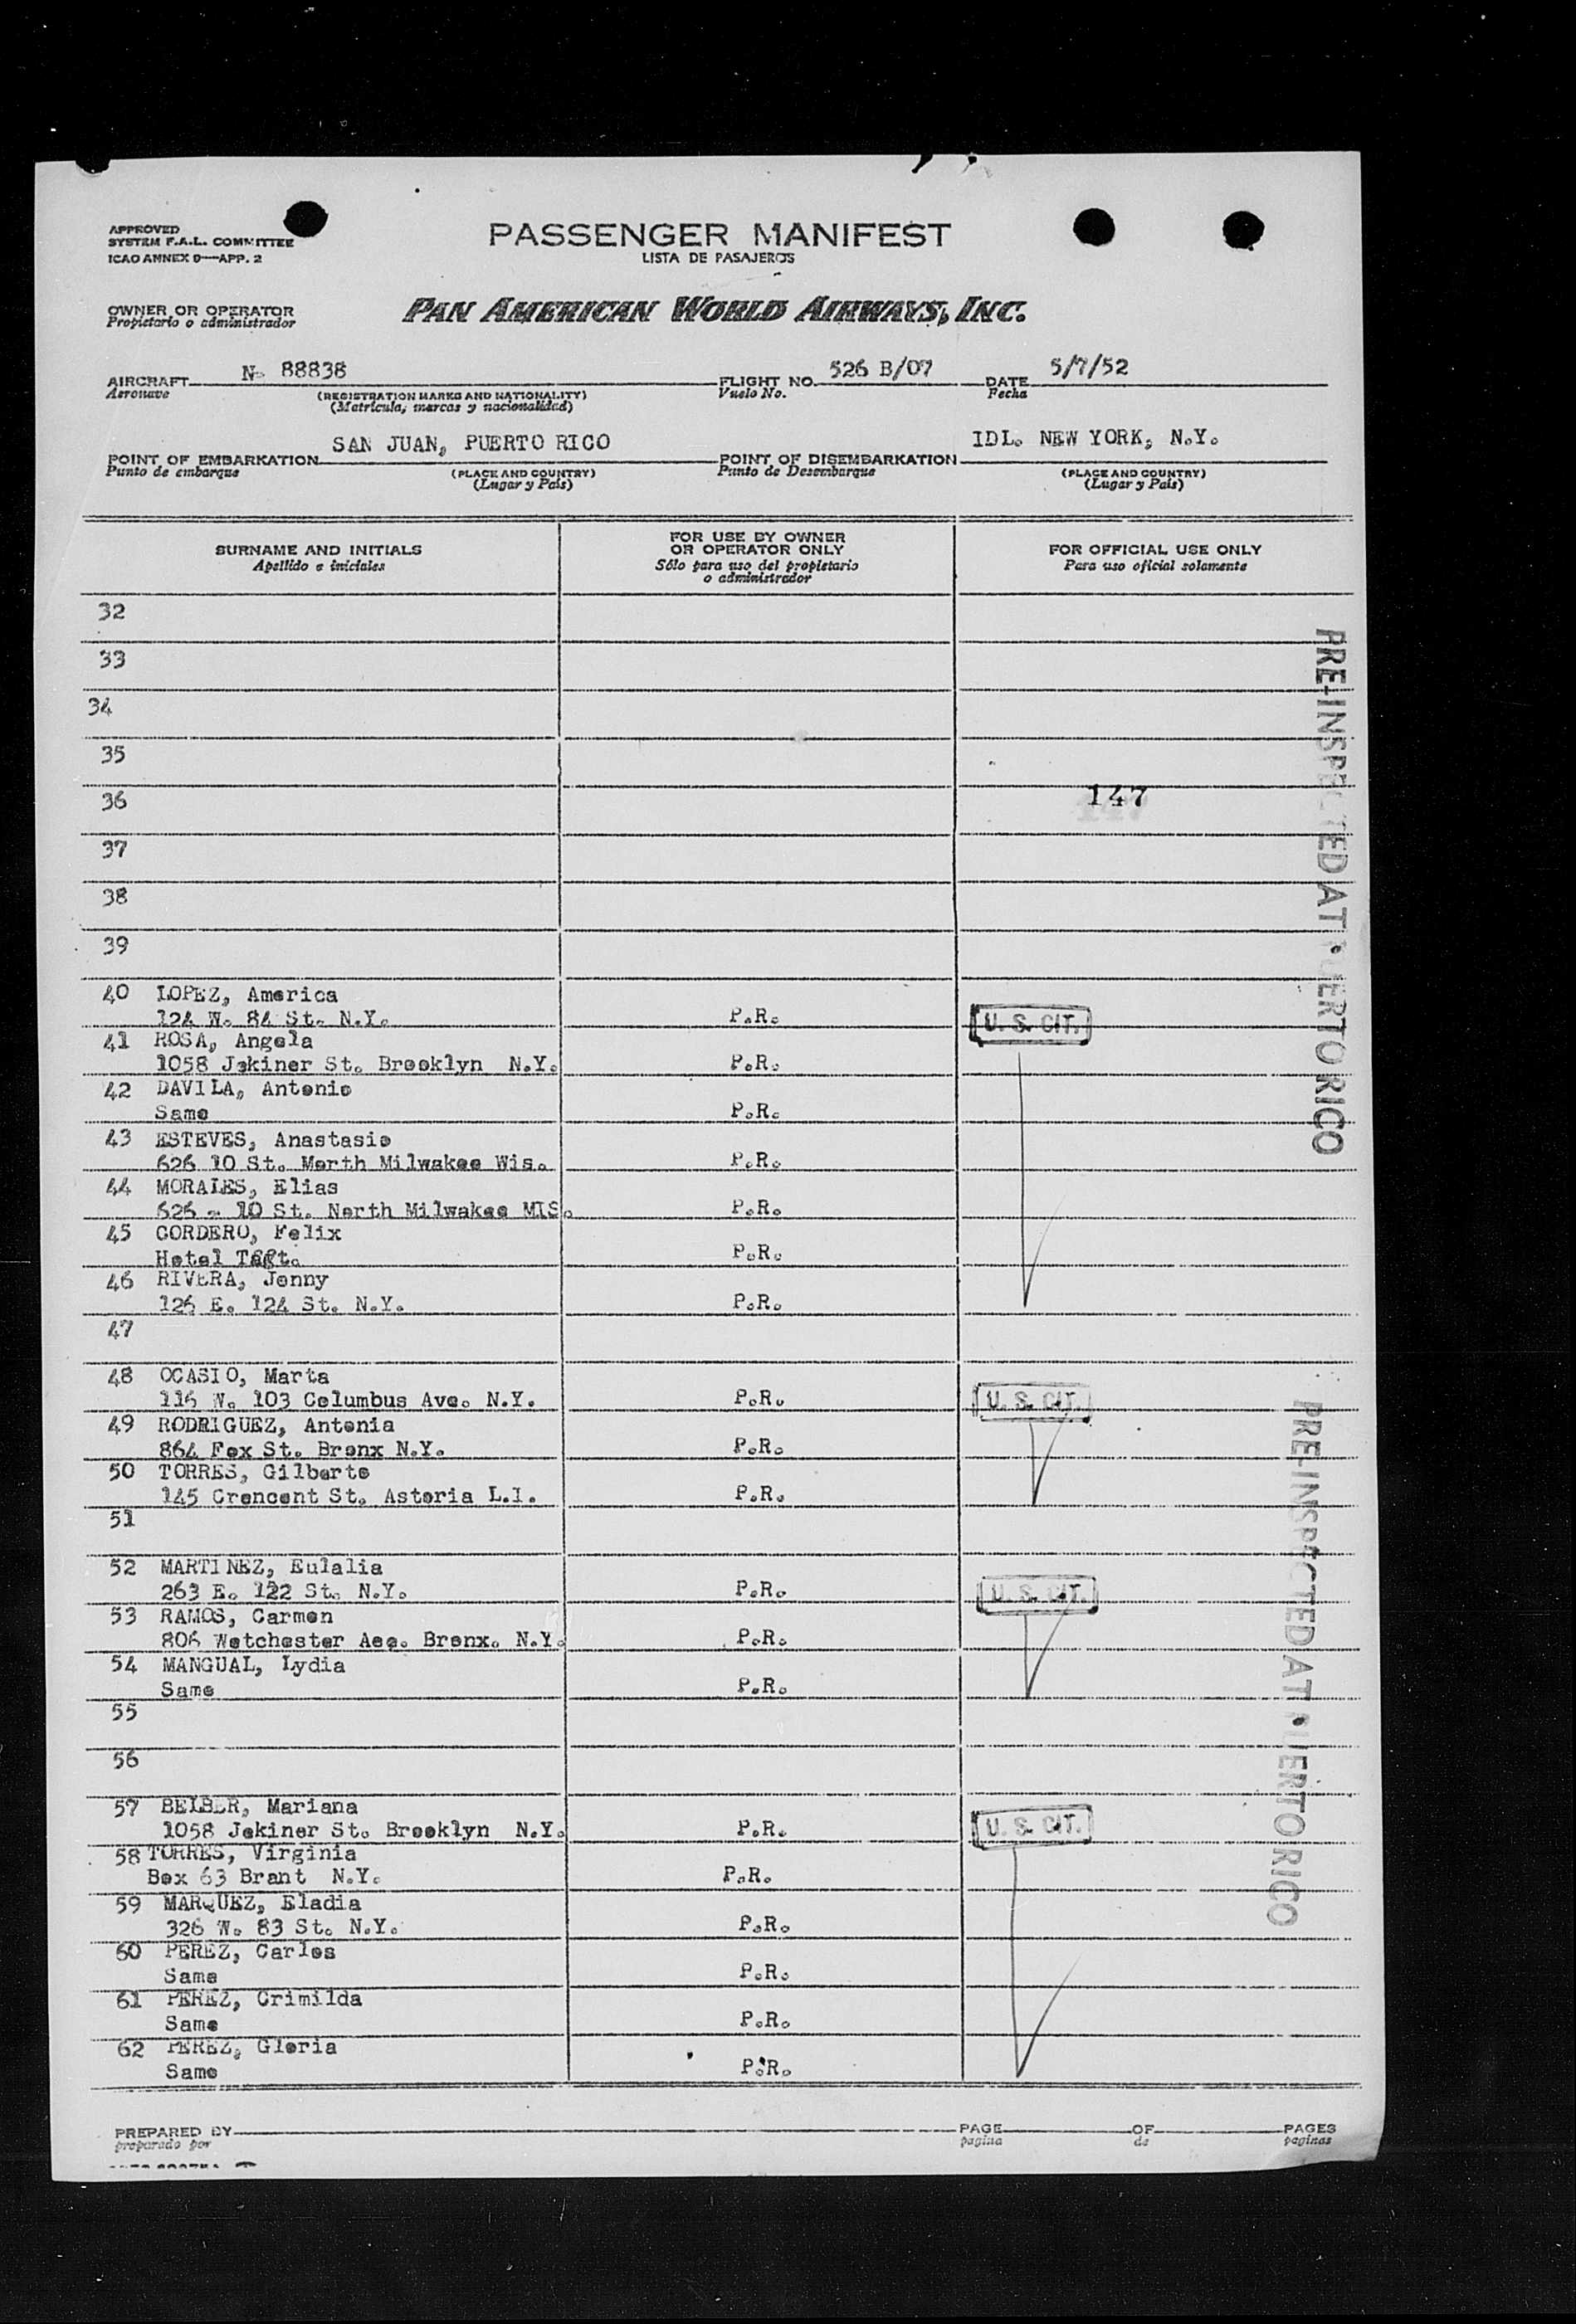 APPROVED
SYSTEM F.A.L. COMMITTEE
ICAO ANNEX 9—APP. 2
PASSENGER MANIFEST
LISTA DE PASAJEROS
OWNER OR OPERATOR
Propietario o administrador
PAN AMERICAN WORLD AIRWAYS, INC.
AIRCRAFT N- 88838 FLIGHT NO. 526 B/07 DATE 5/7/52
Aeronave (REGISTRATION MARKS AND NATIONALITY) Vuelo No. Fecha
(Matrícula, marcas y nacionalidad)
POINT OF EMBARKATION SAN JUAN, PUERTO RICO POINT OF DISEMBARKATION IDL. NEW YORK, N.Y.
Punto de embarque (PLACE AND COUNTRY) Punto de Desembarque (PLACE AND COUNTRY)
(Lugar y País) (Lugar y País)
SURNAME AND INITIALS
Apellido e iniciales
FOR USE BY OWNER
OR OPERATOR ONLY
Sólo para uso del propietario
o administrador
FOR OFFICIAL USE ONLY
Para uso oficial solamente
32
33
34
35
36 147
37
38
39
40 LOPEZ, America
124 W. 84 St. N.Y. P.R. U. S. CIT.
41 ROSA, Angela
1058 Jekiner St. Brooklyn N.Y. P.R.
42 DAVILA, Antonio
Same P.R.
43 ESTEVES, Anastasio
626 10 St. Morth Milwakee Wis. P.R.
44 MORALES, Elias
626 - 10 St. North Milwakee MIS. P.R.
45 CORDERO, Felix
Hotel Taft. P.R.
46 RIVERA, Jenny
126 E. 124 St. N.Y. P.R.
47
48 OCASIO, Marta
116 W. 103 Columbus Ave. N.Y. P.R. U. S. CIT.
49 RODRIGUEZ, Antonia
864 Fox St. Bronx N.Y. P.R.
50 TORRES, Gilberto
145 Crencent St. Astoria L.I. P.R.
51
52 MARTINEZ, Eulalia
263 E. 122 St. N.Y. P.R. U. S. CIT.
53 RAMOS, Carmen
806 Wetchester Aee. Bronx. N.Y. P.R.
54 MANGUAL, Lydia
Same P.R.
55
56
57 BEIBER, Mariana
1058 Jekiner St. Brooklyn N.Y. P.R. U. S. CIT.
58 TORRES, Virginia
Box 63 Brant N.Y. P.R.
59 MARQUEZ, Eladia
326 W. 83 St. N.Y. P.R.
60 PEREZ, Carlos
Same P.R.
61 PEREZ, Crimilda
Same P.R.
62 PEREZ, Gloria
Same P.R.
PRE-INSPECTED AT PUERTO RICO
PRE-INSPECTED AT PUERTO RICO
PREPARED BY PAGE OF PAGES
preparado por pagina de paginas